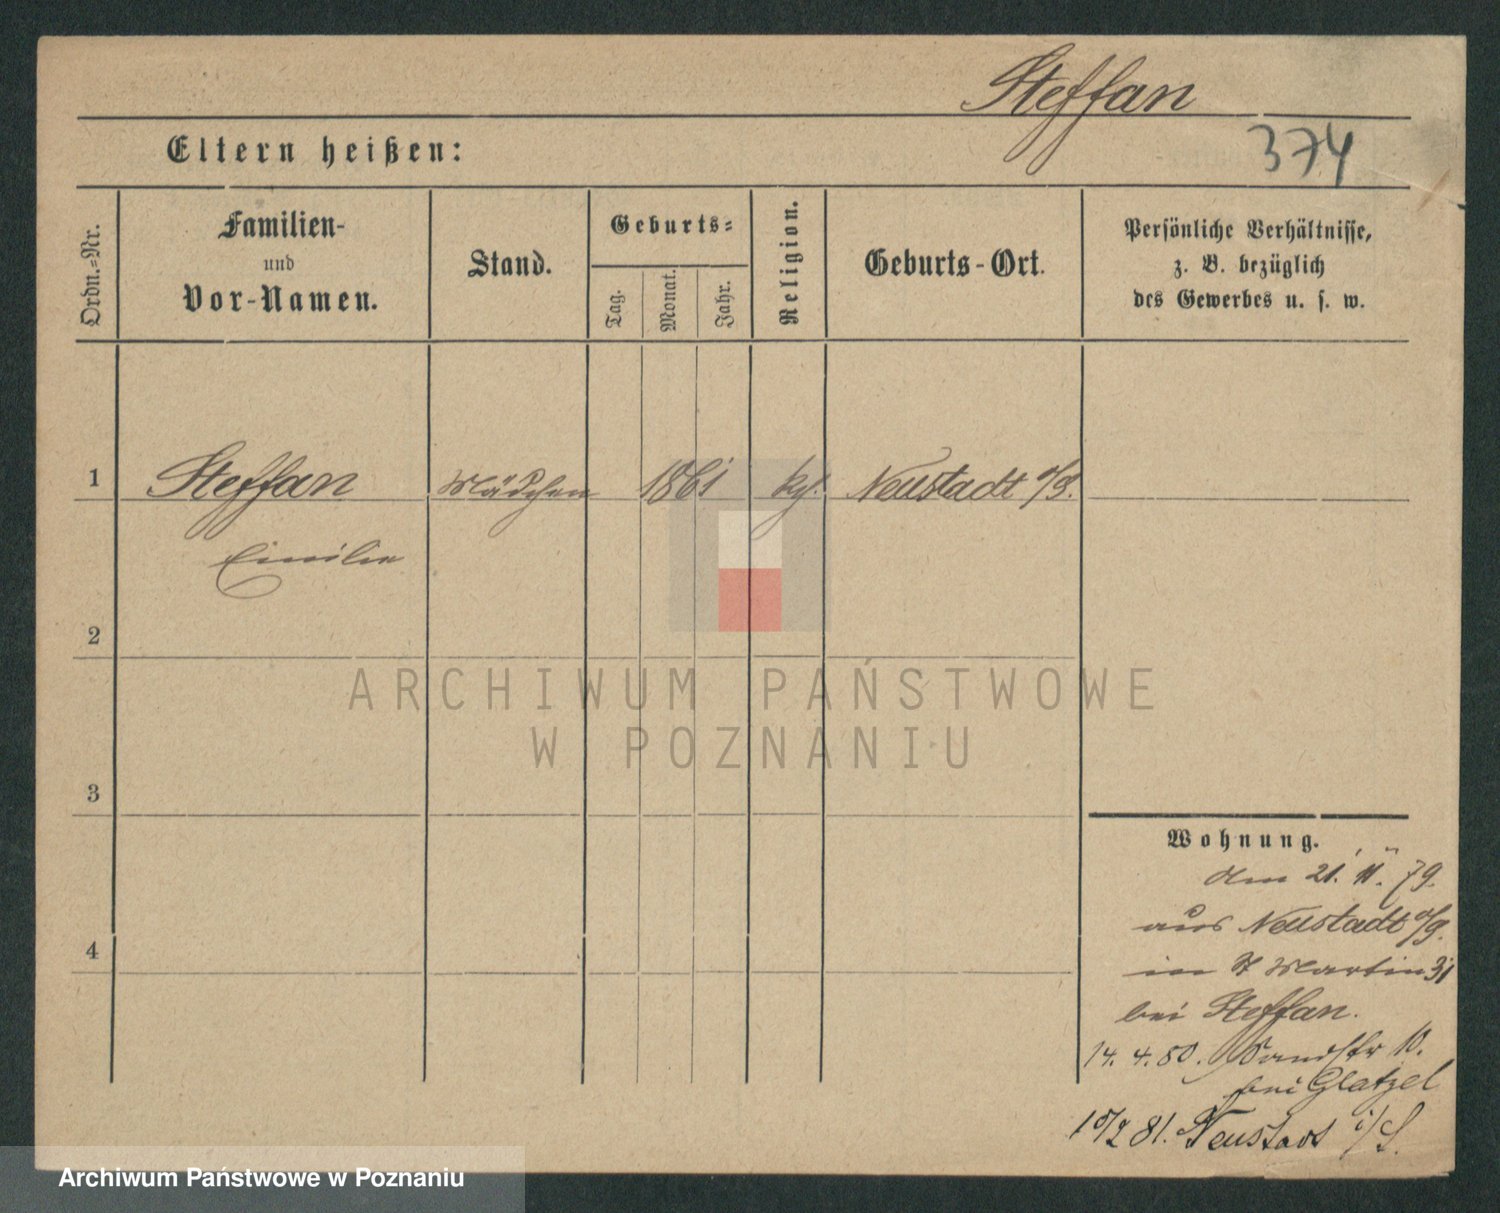 Steffan
374
Eltern heißen:
Ordn.-Nr.
Familien-
und
Vor-Namen.
Stand.
Geburts-
Tag.
Monat.
Jahr.
Religion.
Geburts-Ort.
Persönliche Verhältnisse,
z. B. bezüglich
des Gewerbes u. s. w.
1
Steffan
Mädchen
1861
Neustadt
Emilie
2
ARCHIWUM PAŃSTWOWE
W POZNANIU
3
Wohnung.
den 21. 11. 79.
aus Neustadt
4
in St Martin 31
bei Steffan.
14. 4. 80.
bei Glatzel
81. Neustadt
Archiwum Państwowe w Poznaniu